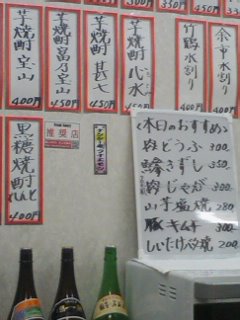 余市水割り
300
竹鶴水割り
350円
芋焼酎 伐水
450円
芋焼酎 甚七
450円
芋焼酎 富乃宝山
450円
芋焼酎 宝山
400円
黒糖焼酎 れんと
400円
推奨店
<本日のおすすめ>
肉どうふ 300
350
肉じゃが 300
山芋塩焼 280
豚キムチ 300
しいたけ 200